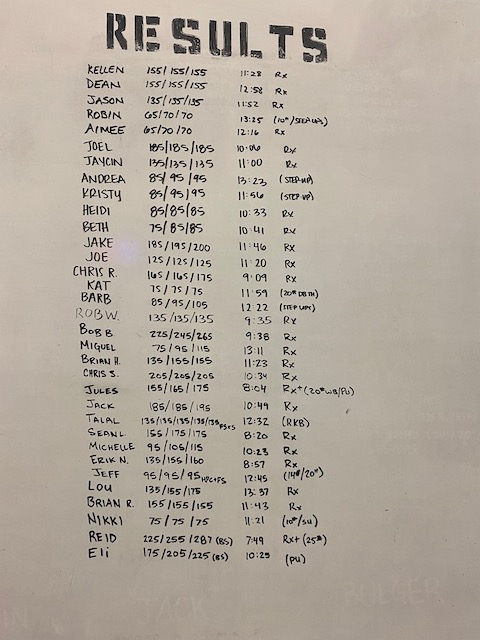 RESULTS
KELLEN 155/155/155 11:28 Rx
DEAN 155/155/155 12:58 Rx
JASON 135/135/135 11:52 Rx
ROBIN 65/70/70 13:25 (10#/STEP UPS)
AIMEE 65/70/70 12:16 Rx
JOEL 185/185/185 10:06 Rx
JAYCIN 135/135/135 11:00 Rx
ANDREA 85/95/95 13:23 (STEP-UP)
KRISTY 85/95/95 11:56 (STEP-UP)
HEIDI 85/85/85 10:33 Rx
BETH 75/85/85 10:41 Rx
JAKE 185/195/200 11:46 Rx
JOE 125/125/125 11:20 Rx
CHRIS R. 165/165/175 9:09 Rx
KAT 75/75/75 11:59 (20# DBTH)
BARB 85/95/105 12:22 (STEP UPS)
ROB W. 135/135/135 9:35 Rx
BOB B. 225/245/265 9:38 Rx
MIGUEL 75/95/115 13:11 Rx
BRIAN H. 135/155/155 11:23 Rx
CHRIS S. 205/205/205 10:34 Rx
JULES 155/165/175 8:04 Rx+(20#WB/PU)
JACK 185/185/195 10:49 Rx
TALAL 135/135/135/135/135 12:32 (RKB)
SEAN L. 155/175/175 8:20 Rx
MICHELLE 95/105/115 10:23 Rx
ERIK N. 135/155/160 8:57 Rx
JEFF 95/95/95 HPC+FS 12:45 (14#/20")
LOU 135/155/175 13:37 Rx
BRIAN R. 155/155/155 11:43 Rx
NIKKI 75/75/75 11:21 (10#/SU)
REID 225/255/287 (BS) 7:49 Rx+ (25#)
Eli 175/205/225 (BS) 10:25 (PU)
JACK
BULGER